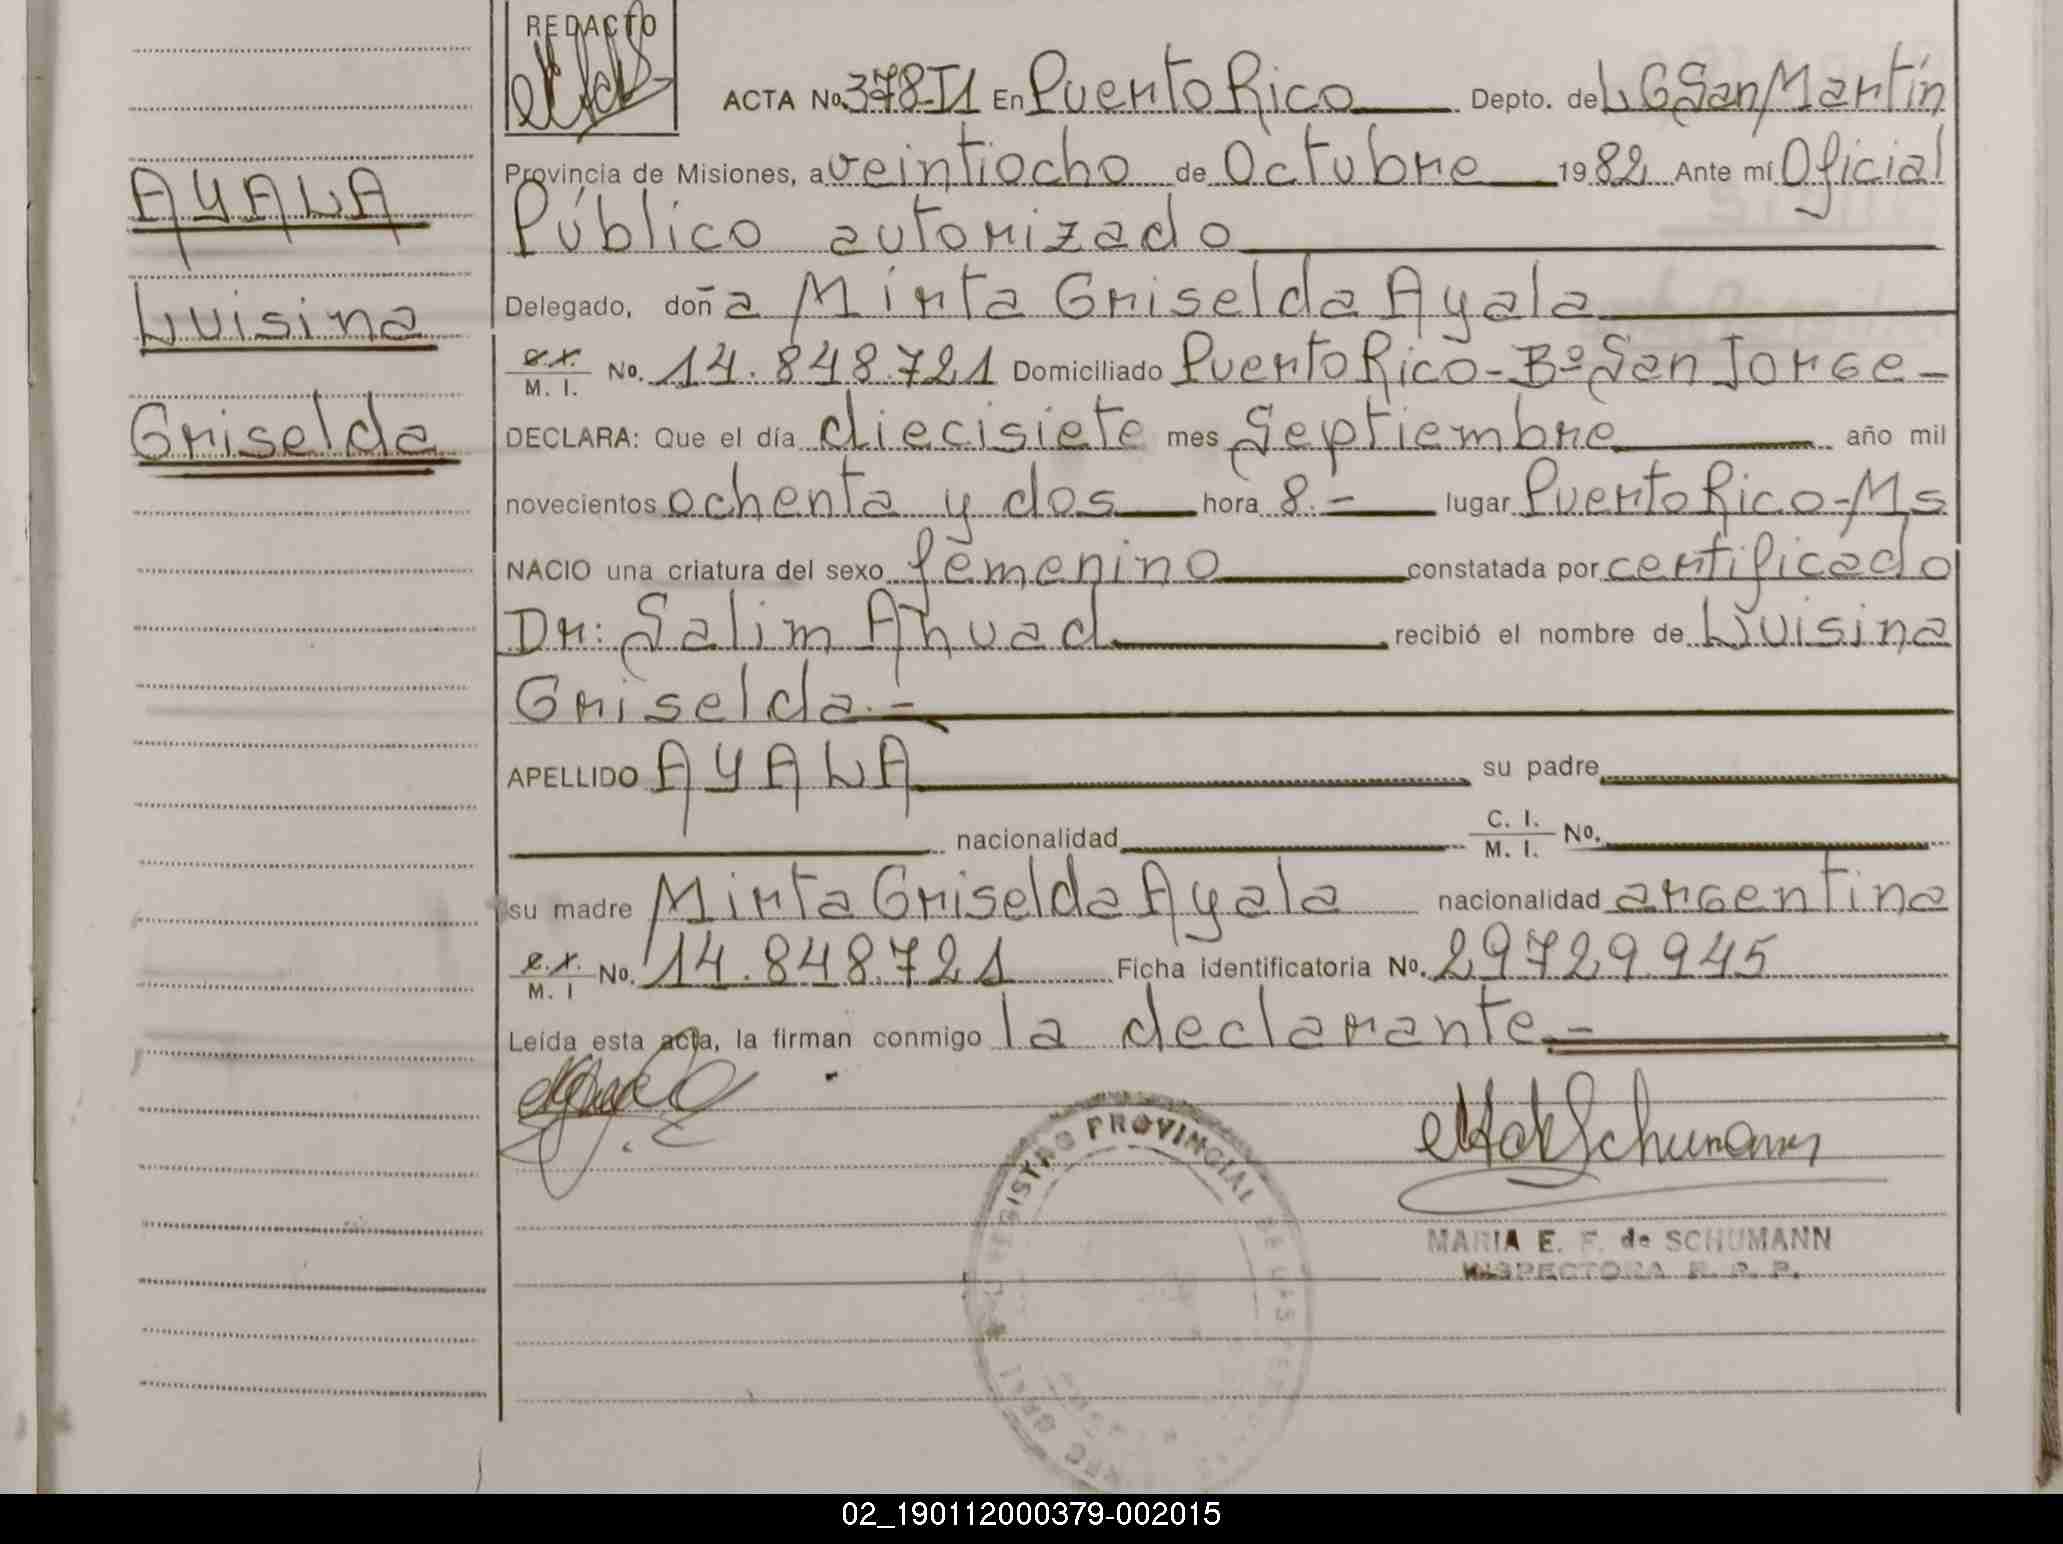 REDACTO
ACTA No. 378 T1 En Puerto Rico Depto. de L G San Martín
Provincia de Misiones, a veintiocho de Octubre 1982 Ante mí Oficial
Público autorizado
Delegado, doña Mirta Griselda Ayala
C.I. M. I. No. 14.848.721 Domiciliado Puerto Rico - Bº San Jorge -
DECLARA: Que el día diecisiete mes Septiembre año mil
novecientos ochenta y dos hora 8.- lugar Puerto Rico-Ms
NACIO una criatura del sexo femenino constatada por certificado
Dr: Salim Ahuad recibió el nombre de Luisina
Griselda.-
APELLIDO AYALA su padre
nacionalidad C. I. M. I. No.
su madre Mirta Griselda Ayala nacionalidad argentina
C.I. M. I No. 14.848.721 Ficha identificatoria No. 29729945
Leída esta acta, la firman conmigo la declarante.-
AYALA
Luisina
Griselda
REGISTRO PROVINCIAL DE LAS PER
de Schumann
MARIA E. F. de SCHUMANN
INSPECTORA R. P. P.
02_190112000379-002015